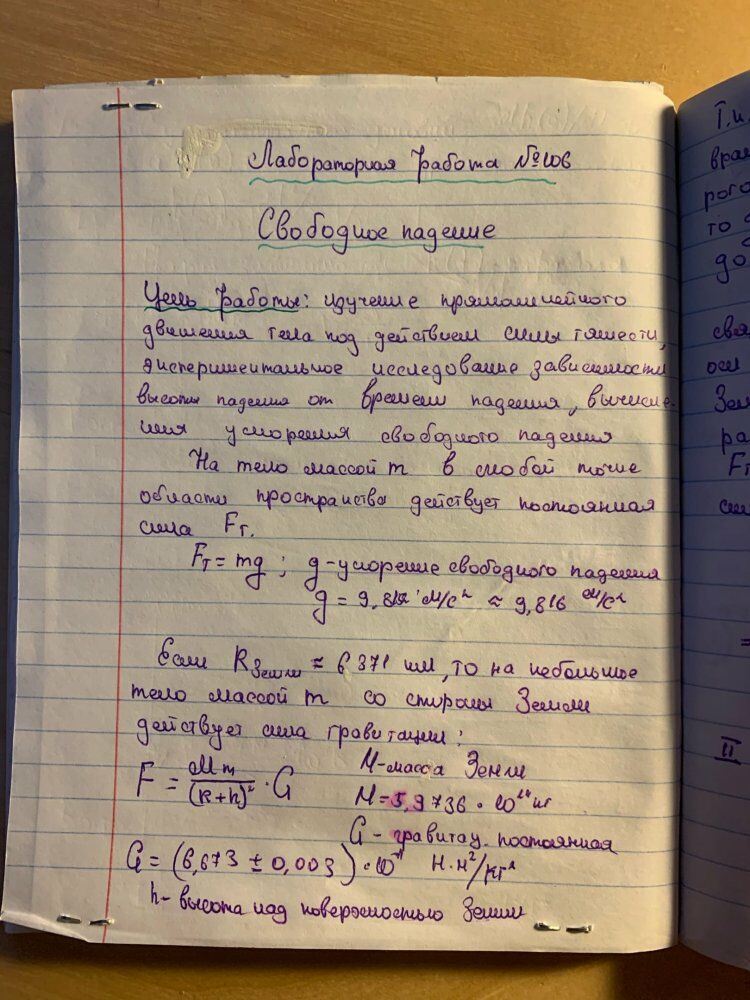 Лабораторная работа №106
Свободное падение
Цель работы: изучение прямолинейного
движения тела под действием силы тяжести,
экспериментальное исследование зависимости
высоты падения от времени падения, вычисле-
ния ускорения свободного падения
На тело массой m в любой точке
области пространства действует постоянная
сила Fт.
Fт = mg ; g - ускорение свободного падения
g = м/с² ≈ 9,816 м/с²
Если R Земли ≈ 6371 км, то на небольшое
тело массой m со стороны Земли
действует сила гравитации:
F = Mm/(R+h)² · G
M - масса Земли
M = 5,9736 · 10²⁴ кг
G - гравитац. постоянная
G = (6,673 ± 0,003) · 10⁻¹¹ Н·м²/кг²
h - высота над поверхностью Земли
Т.к.
вращ
рого
то
доб
свя
оси
Зем
ра
Fт
сил
=
II